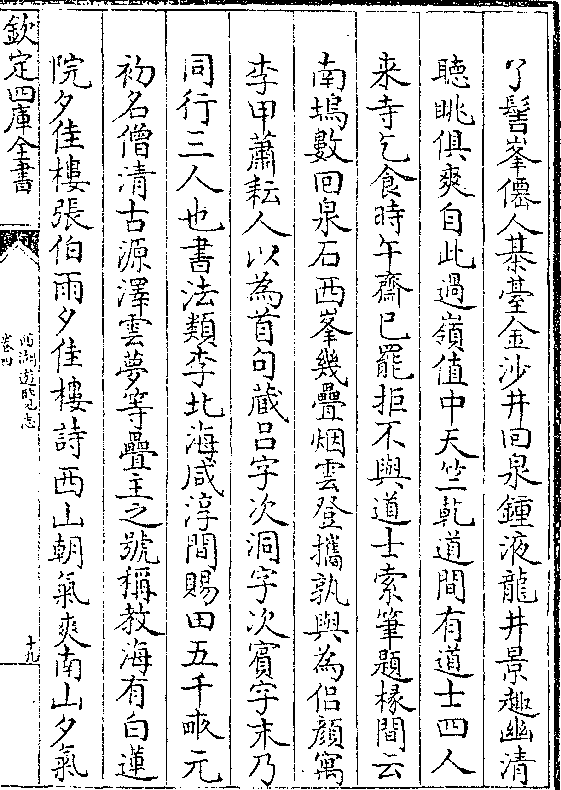 了髻峯僊人棊臺金沙井回泉鍾液龍井景趣幽清
聽眺俱爽自此過嶺值中天竺乾道間有道士四人
来寺乞食時午齋已罷拒不與道士索筆題椽間云
南塢數回泉石西峯幾疊烟雲登攜孰與為侶顔寓
李甲蕭耘人以為首句蔵吕字次洞字次賓字末乃
同行三人也書法類李北海咸淳間賜田五千畞元
初名僧清古源澤雲夢等疊主之號稱教海有白蓮
院夕佳樓張伯雨夕佳樓詩西山朝氣爽南山夕氣
欽定四庫全書
西湖遊覽志
卷四
十九